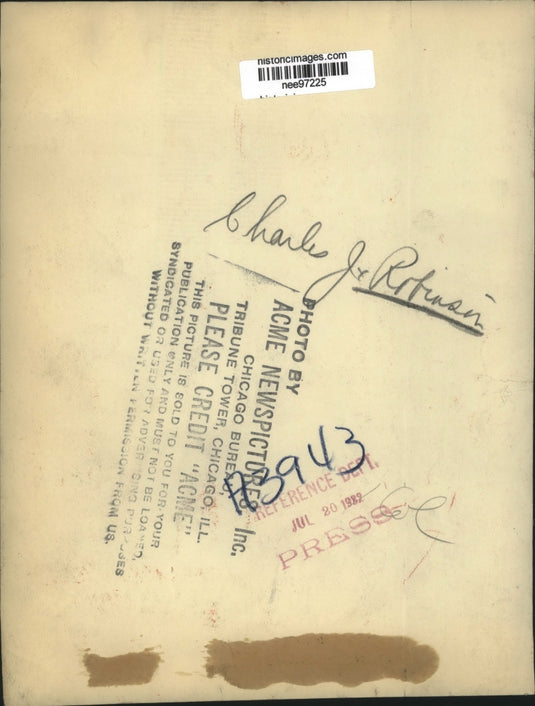 historicimages.com
nee97225
Charles J. Robinson
PHOTO BY
ACME NEWSPICTURES Inc.
CHICAGO BUREAU
TRIBUNE TOWER, CHICAGO, ILL.
PLEASE CREDIT "ACME"
THIS PICTURE IS SOLD TO YOU FOR YOUR
PUBLICATION ONLY AND MUST NOT BE LOANED,
SYNDICATED OR USED FOR ADVERTISING PURPOSES
WITHOUT WRITTEN PERMISSION FROM US.
A3943
REFERENCE DEPT.
JUL 20 1932
PRESS